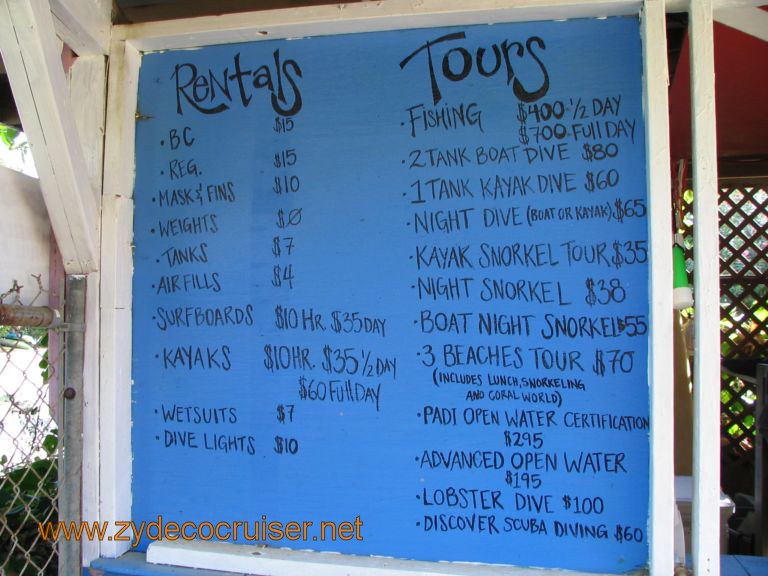 Rentals
• BC $15
• REG. $15
• MASK & FINS $10
• WEIGHTS $0
• TANKS $7
• AIR FILLS $4
• SURFBOARDS $10 HR. $35 DAY
• KAYAKS $10 HR. $35 1/2 DAY
$60 Full DAY
• WETSUITS $7
• DIVE LIGHTS $10
Tours
• FISHING $400-1/2 DAY
$700-Full DAY
• 2 TANK BOAT DIVE $80
• 1 TANK KAYAK DIVE $60
• NIGHT DIVE (BOAT OR KAYAK) $65
• KAYAK SNORKEL TOUR $35
• NIGHT SNORKEL $38
• BOAT NIGHT SNORKEL $55
• 3 BEACHES TOUR $70
(INCLUDES LUNCH, SNORKELING
AND CORAL WORLD)
• PADI OPEN WATER CERTIFICATION
$295
• ADVANCED OPEN WATER
$195
• LOBSTER DIVE $100
• DISCOVER SCUBA DIVING $60
www.zydecocruiser.net